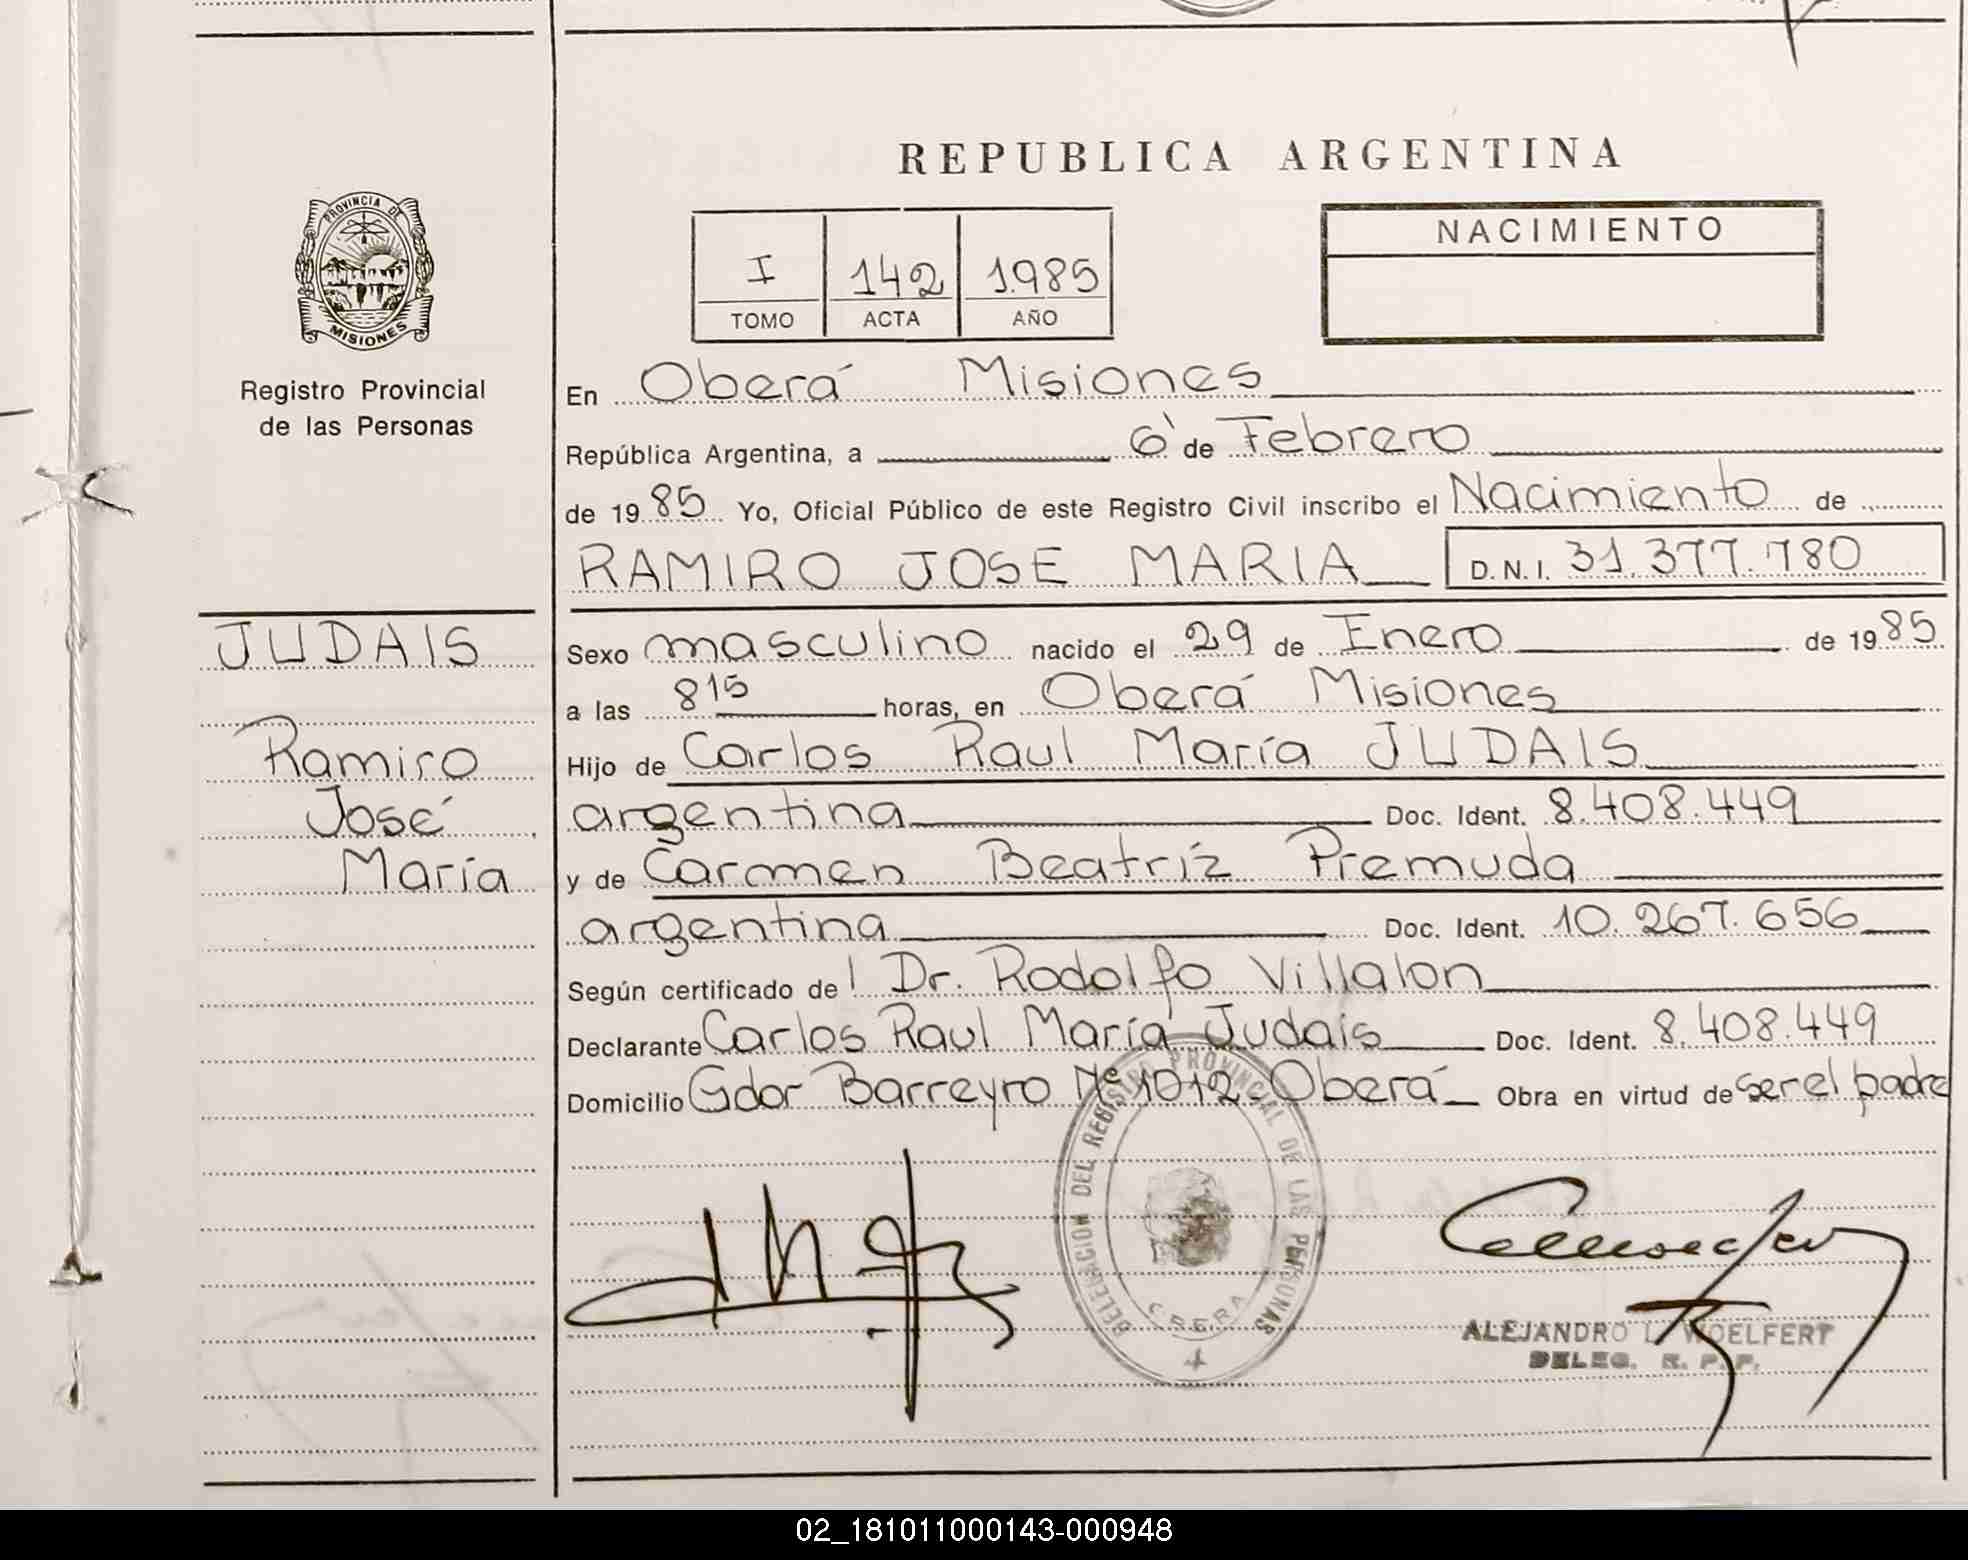 REPUBLICA ARGENTINA
PROVINCIA DE
MISIONES
Registro Provincial
de las Personas
I 142 1985
TOMO ACTA AÑO
NACIMIENTO
En Oberá Misiones
República Argentina, a 6 de Febrero
de 1985 Yo, Oficial Público de este Registro Civil inscribo el Nacimiento de
RAMIRO JOSE MARIA D.N.I. 31.377.780
JUDAIS
Ramiro
José
María
Sexo masculino nacido el 29 de Enero de 1985
a las 8 15 horas, en Oberá Misiones
Hijo de Carlos Raul María JUDAIS
argentina Doc. Ident. 8.408.449
y de Carmen Beatríz Premuda
argentina Doc. Ident. 10.267.656
Según certificado del Dr. Rodolfo Villalon
Declarante Carlos Raul María Judais Doc. Ident. 8.408.449
Domicilio Gdor Barreyro Nº 1012 Oberá Obra en virtud de ser el padre
DELEGACION DEL REGISTRO PROVINCIAL DE LAS PERSONAS
OBERA
ALEJANDRO L. WOELFERT
DELEG. R. P. P.
02_181011000143-000948